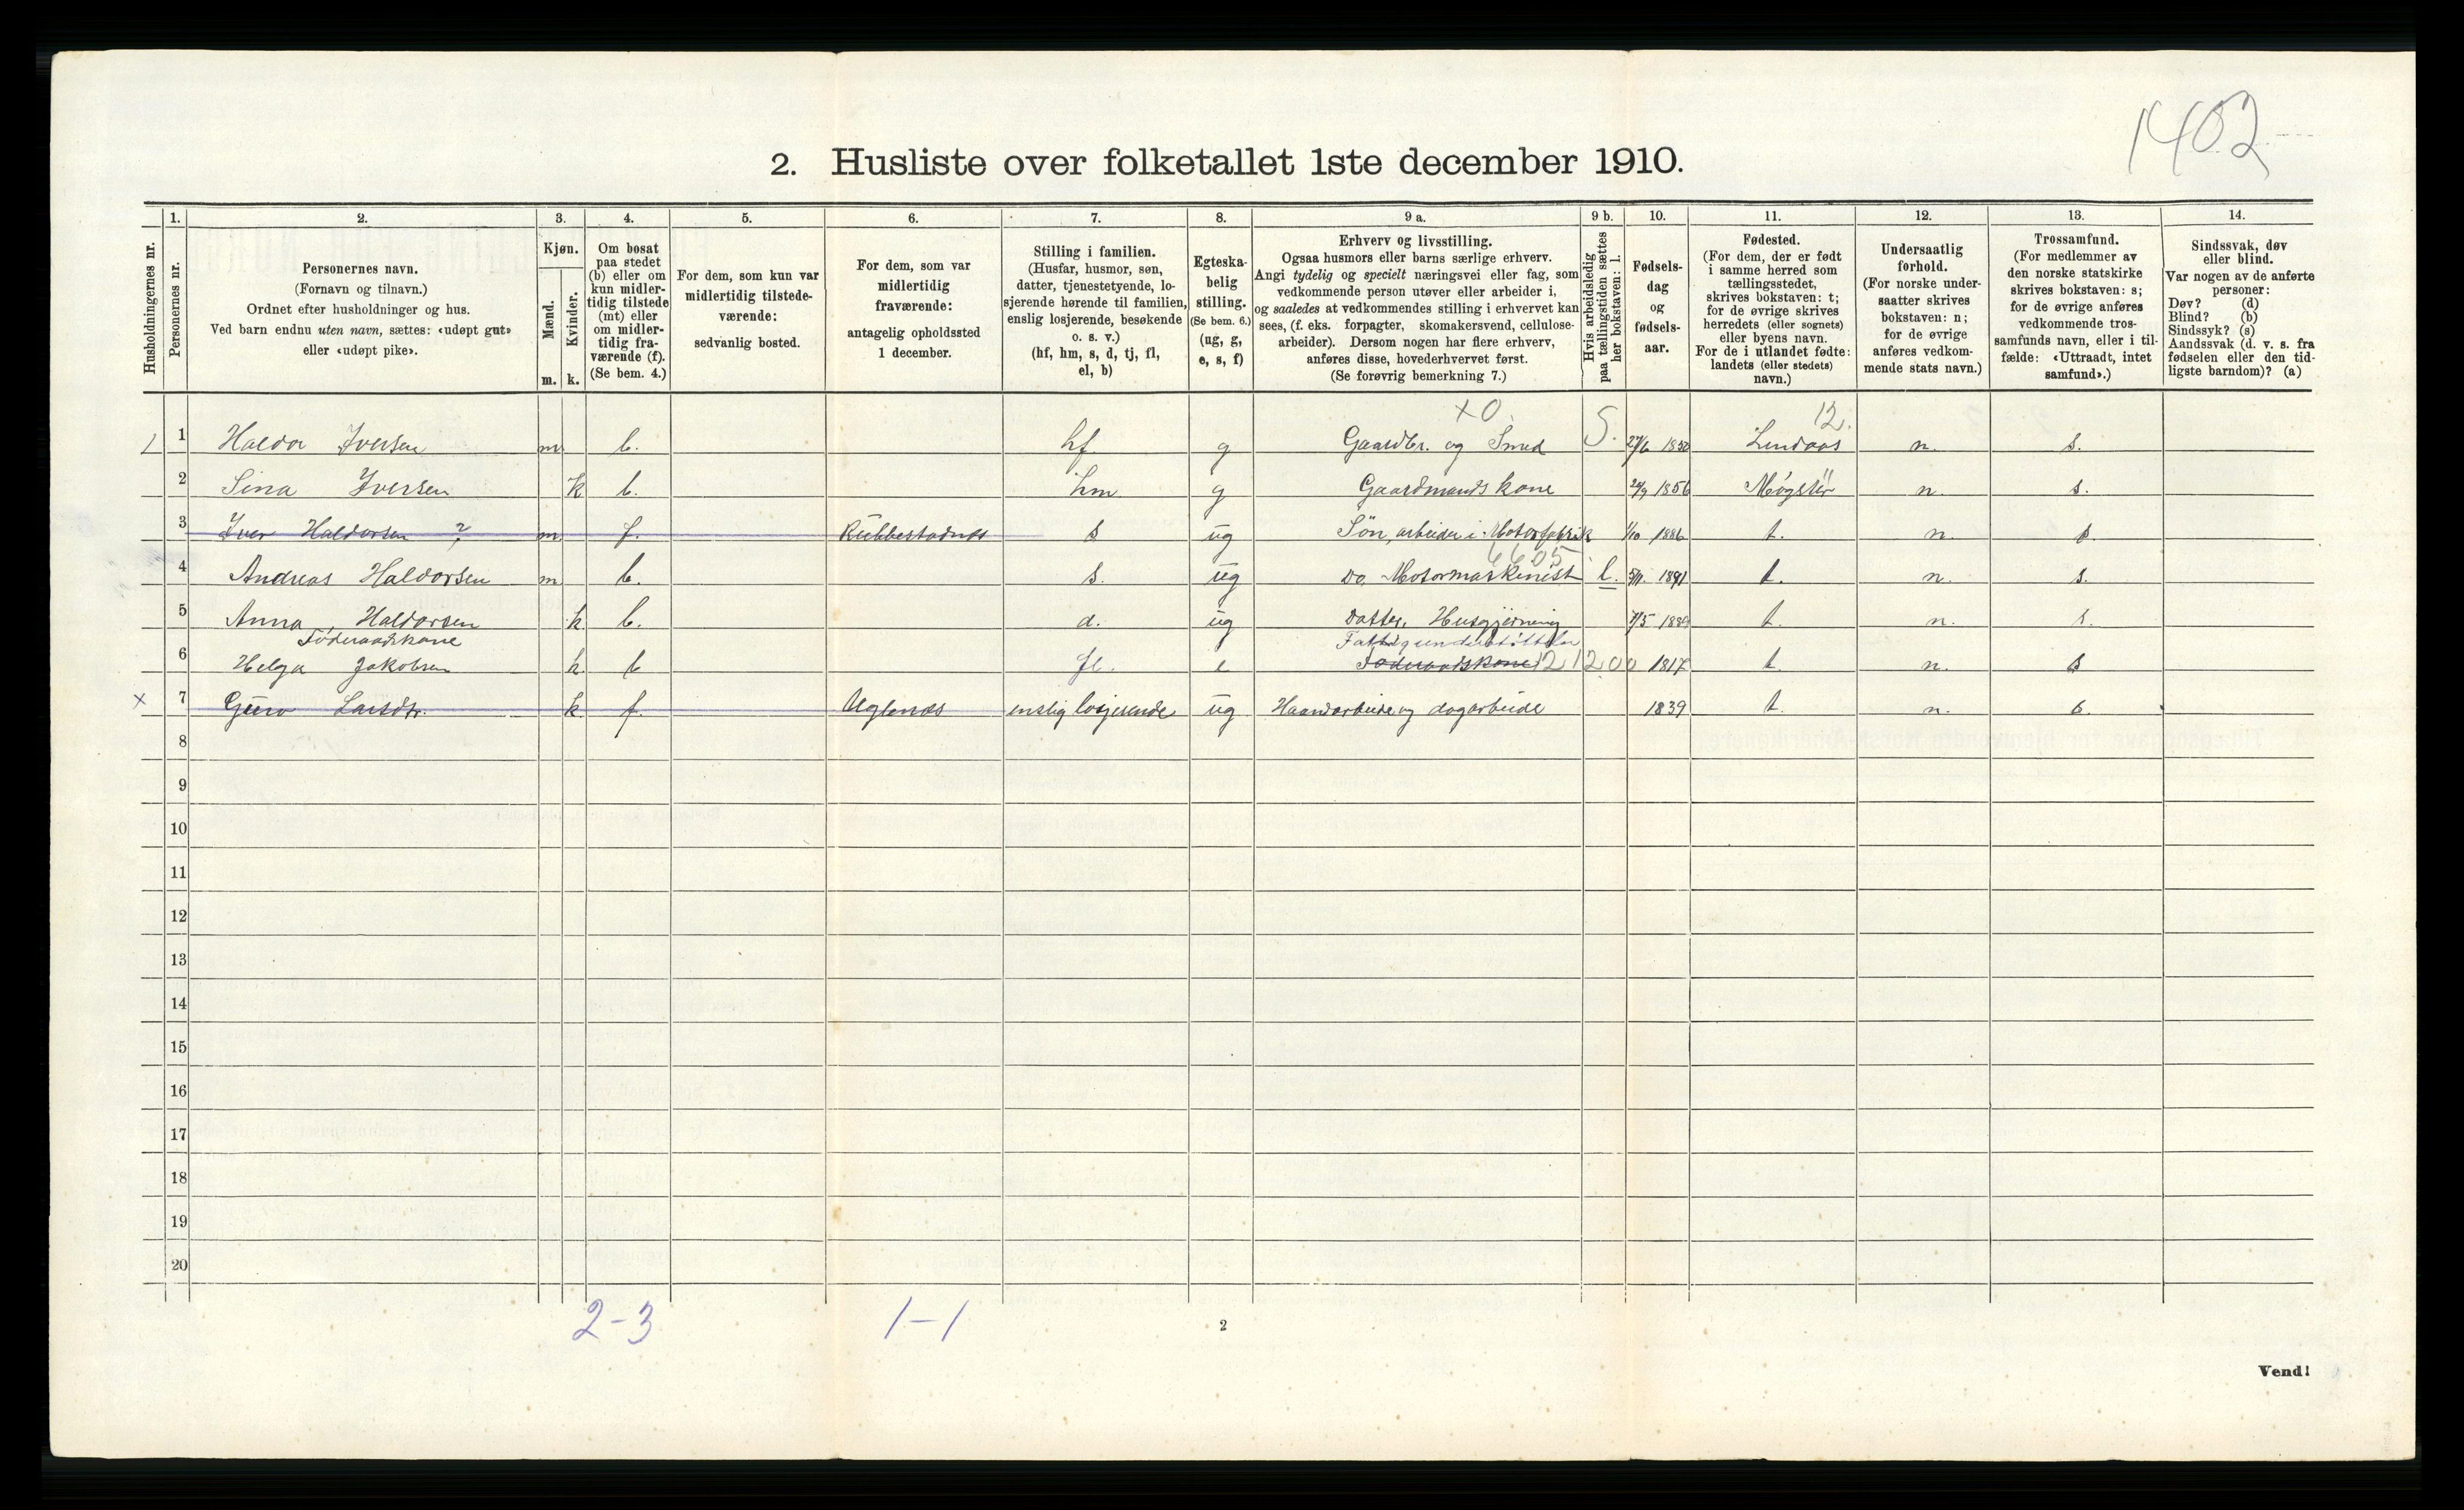 1402
2. Husliste over folketallet 1ste december 1910.
Husholdningernes nr.
1.
Personernes nr.
2.
Personernes navn.
(Fornavn og tilnavn.)
Ordnet efter husholdninger og hus.
Ved barn endnu uten navn, sættes: «udøpt gut»
eller «udøpt pike».
3.
Kjøn.
Mænd.
Kvinder.
m. k.
4.
Om bosat
paa stedet
(b) eller om
kun midler-
tidig tilstede
(mt) eller
om midler-
tidig fra-
værende (f).
(Se bem. 4.)
5.
For dem, som kun var
midlertidig tilstede-
værende:
sedvanlig bosted.
6.
For dem, som var
midlertidig
fraværende:
antagelig opholdssted
1 december.
7.
Stilling i familien.
(Husfar, husmor, søn,
datter, tjenestetyende, lo-
sjerende hørende til familien,
enslig losjerende, besøkende
o. s. v.)
(hf, hm, s, d, tj, fl,
el, b)
8.
Egteska-
belig
stilling.
(Se bem. 6.)
(ug, g,
e, s, f)
9 a.
Erhverv og livsstilling.
Ogsaa husmors eller barns særlige erhverv.
Angi tydelig og specielt næringsvei eller fag, som
vedkommende person utøver eller arbeider i,
og saaledes at vedkommendes stilling i erhvervet kan
sees, (f. eks. forpagter, skomakersvend, cellulose-
arbeider). Dersom nogen har flere erhverv,
anføres disse, hovederhvervet først.
(Se forøvrig bemerkning 7.)
9 b.
Hvis arbeidsledig
paa tællingstiden sættes
her bokstaven: l.
10.
Fødsels-
dag
og
fødsels-
aar.
11.
Fødested.
(For dem, der er født
i samme herred som
tællingsstedet,
skrives bokstaven: t;
for de øvrige skrives
herredets (eller sognets)
eller byens navn.
For de i utlandet fødte:
landets (eller stedets)
navn.)
12.
Undersaatlig
forhold.
(For norske under-
saatter skrives
bokstaven: n;
for de øvrige
anføres vedkom-
mende stats navn.)
13.
Trossamfund.
(For medlemmer av
den norske statskirke
skrives bokstaven: s;
for de øvrige anføres
vedkommende tros-
samfunds navn, eller i til-
fælde: «Uttraadt, intet
samfund».)
14.
Sindssvak, døv
eller blind.
Var nogen av de anførte
personer:
Døv? (d)
Blind? (b)
Sindssyk? (s)
Aandssvak (d. v. s. fra
fødselen eller den tid-
ligste barndom)? (a)
x0 12.
1 1 Haldor Iversen m b. hf g Gaardbr. og Smed S. 27/6 1850 Lindaas n. s.
2 Sina Iversen k b. hm g Gaardmands kone 24/9 1856 Møgster n. s.
3 Iver Haldorsen ? m f. Rubbestadnes s ug Søn, arbeider i Motorfabrik 1/10 1886 t. n. s.
6605
4 Andreas Haldorsen m b. s. ug Do Motormaskinist l. 5/11 1891 t. n. s.
5 Anna Haldorsen k b. d. ug Datter, Husgjerning 7/5 1889 t. n. s.
Føderaadskone
6 Helga Jakobsen k b fl. e Føderaadskone 121200 1817 t. n. s
x 7 Guro Larsdtr. k f. Uglenes enslig losjerende ug Haandarbeide og dagarbeide 1839 t. n. s.
8
9
10
11
12
13
14
15
16
17
18
19
20
2-3 1-1
2
Vend!